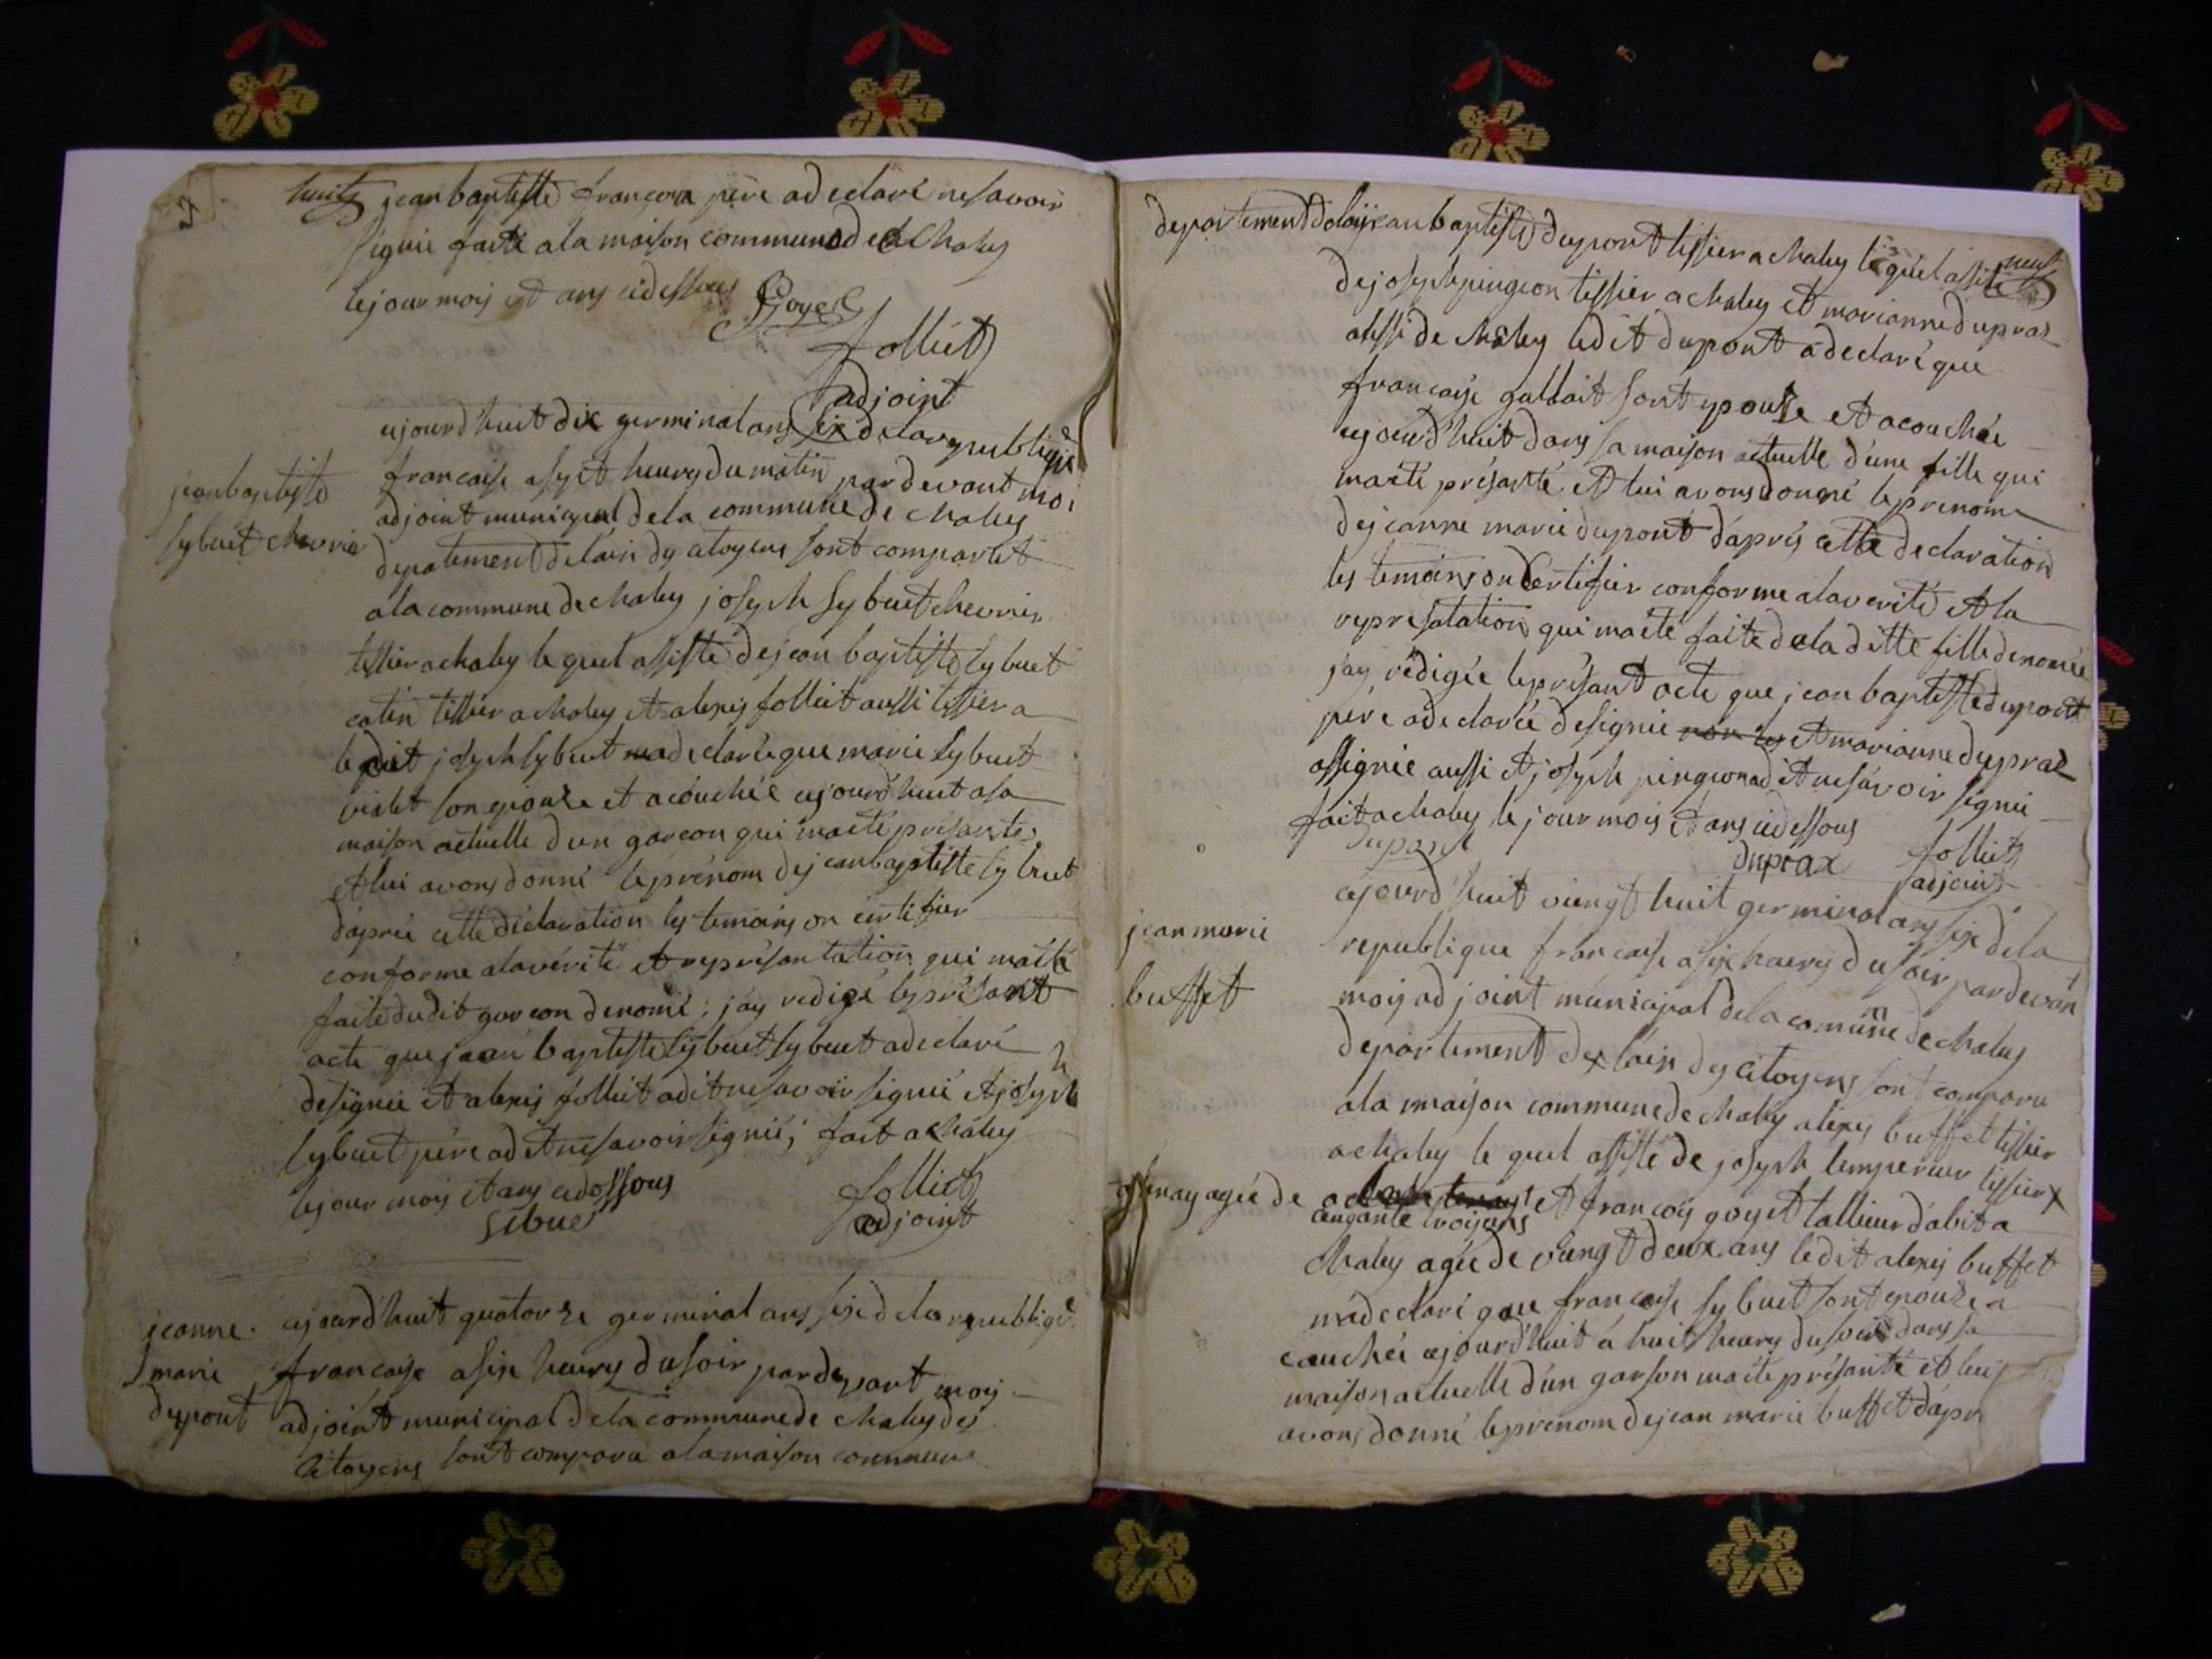 huit jean baptiste francon père a declaré ne savoir
signié faite a la maison commune de Chaley
le jour mois et ans cidessus Goyet
folliet
adjoint
ujourdhuit dix germinal ans six de la republique
jean baptiste
sybuet chevrier
francaise a set heures du matin par devant moi
adjoint municipal de la commune de chaley
depatement de lain des citoyens sont comparut
a la commune de chaley joseph sybuet chevrier
tissier a chaley le quel assisté de jean baptiste sybuet
catin tissier a chaley et alexis folliet aussi tissier a
le dit joseph sybuet ma declaré que marie sybuet
violet son epouze et acouchée ujourdhuit a sa
maison actuelle d'un garcon qui maété présanté
et lui avons donné le prénom de jean baptiste sybuet
daprés cette déclaration les temoins on certifier
conforme a la vérité et représantation qui maété
faite du dit garcon denomé; jay redigé le présant
acte que jean baptiste sybuet sybuet a declaré
de signié et alexis folliet a dit ne savoir signié et joseph
sybuet père a dit ne savoir signié; fait a chaley
le jour mois et ans cidessous
sibuet
folliet
adjoint
jeanne
marie
dupont
ujourdhuit quatorze germinal ans six de la republique
francaise a six heures du soir par devant moy
adjoint municipal de la commune de chaley des
citoyens sont comparu a la maison commune
neuf
departement de lain jean baptiste dupont tissier a chaley le quel assisté
de joseph pingeon tissier a chaley et marianne dupras
aussi de chaley le dit dupont a declaré que
francaise galbait sont epouze et acouchée
ujourdhuit dans sa maison actuelle d'une fille qui
maété présanté et lui avons donné le prenom
de jeanne marie dupont d'aprés cette declaration
les temoins on certifier conforme a la verité et la
represatation qui maété faite de la ditte fille denomée
jay rédigée le présant acte que jean baptiste dupont
père a declarée de signié et marianne dupraz
assignie aussi et joseph pingeon a dit ne savoir signié
fait a chaley le jour mois et ans cidessous
dupont
duprax
folliet
adjoint
jean marie
buffet
ujourdhuit vingt huit germinal ans six de la
republique francaise a six heures du soir par devant
moy adjoint municipal de la comune de chaley
departement de lain des citoyens sont comparu
a la maison commune de chaley alexis buffet tissier
a chaley le quel assisté de joseph lempereur tissier x
agée de
et francois goyet tallieur dabit a
cinqante trois ans
chaley agée de vingt deux ans ledit alexis buffet
ma declaré que francaise sybuet sont epouze a
couchée ujourdhuit a huit heures du soir dans sa
maison actuelle d'un garson maété présanté et luy
avons donné le prenom de jean marie buffet dapr